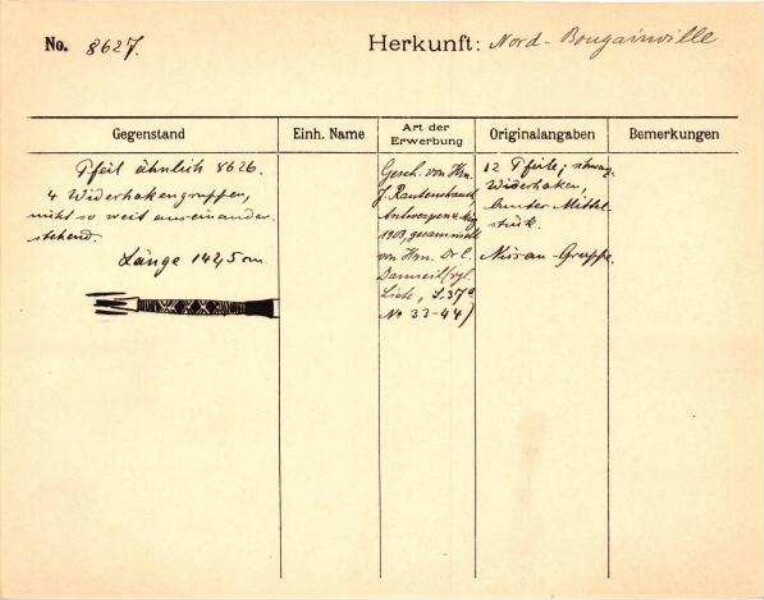 No. 8627.
Herkunft: Nord-Bougainville
Gegenstand
Einh. Name
Art der Erwerbung
Originalangaben
Bemerkungen
Pfeil ähnlich 8626.
4 Widerhakengruppen,
nicht so weit auseinander
stehend.
Länge 142,5 cm
Gesch. von Hrn.
J. Rautenstrauch
Antwerpen
1903, gesammelt
von Hrn. Dr C.
Liste, S. 37
No 33-44)
12 Pfeile;
Widerhaken,
bunter Mittel-
stück.
Nissan-Gruppe.